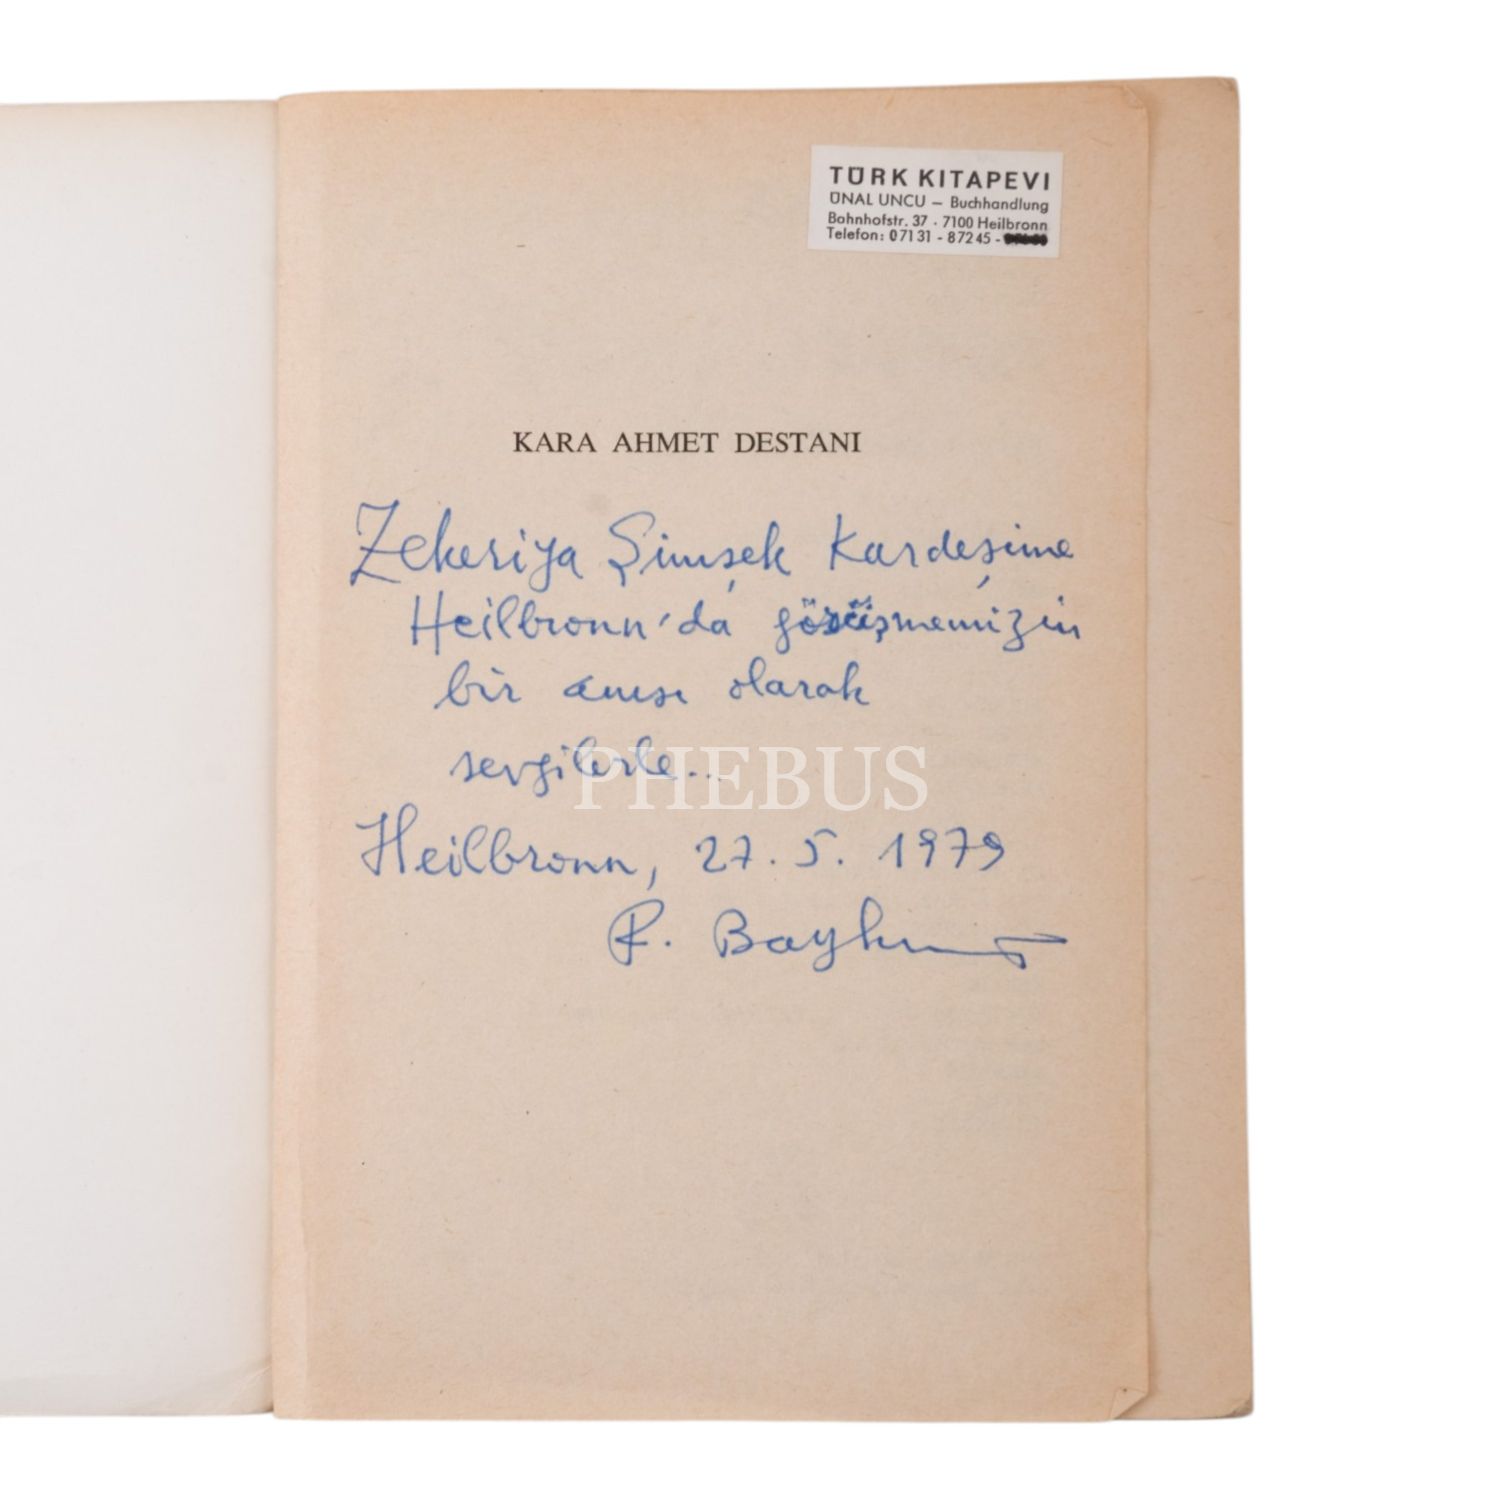 TÜRK KITAPEVI
ÜNAL UNCU – Buchhandlung
Bahnhofstr. 37 · 7100 Heilbronn
Telefon: 07131 - 87245 -
KARA AHMET DESTANI
Zekeriya Şimşek Kardeşime
Heilbronn'da görüşmemizin
bir anısı olarak
sevgilerle...
PHEBUS
Heilbronn, 27.5.1979
F. Baykurt